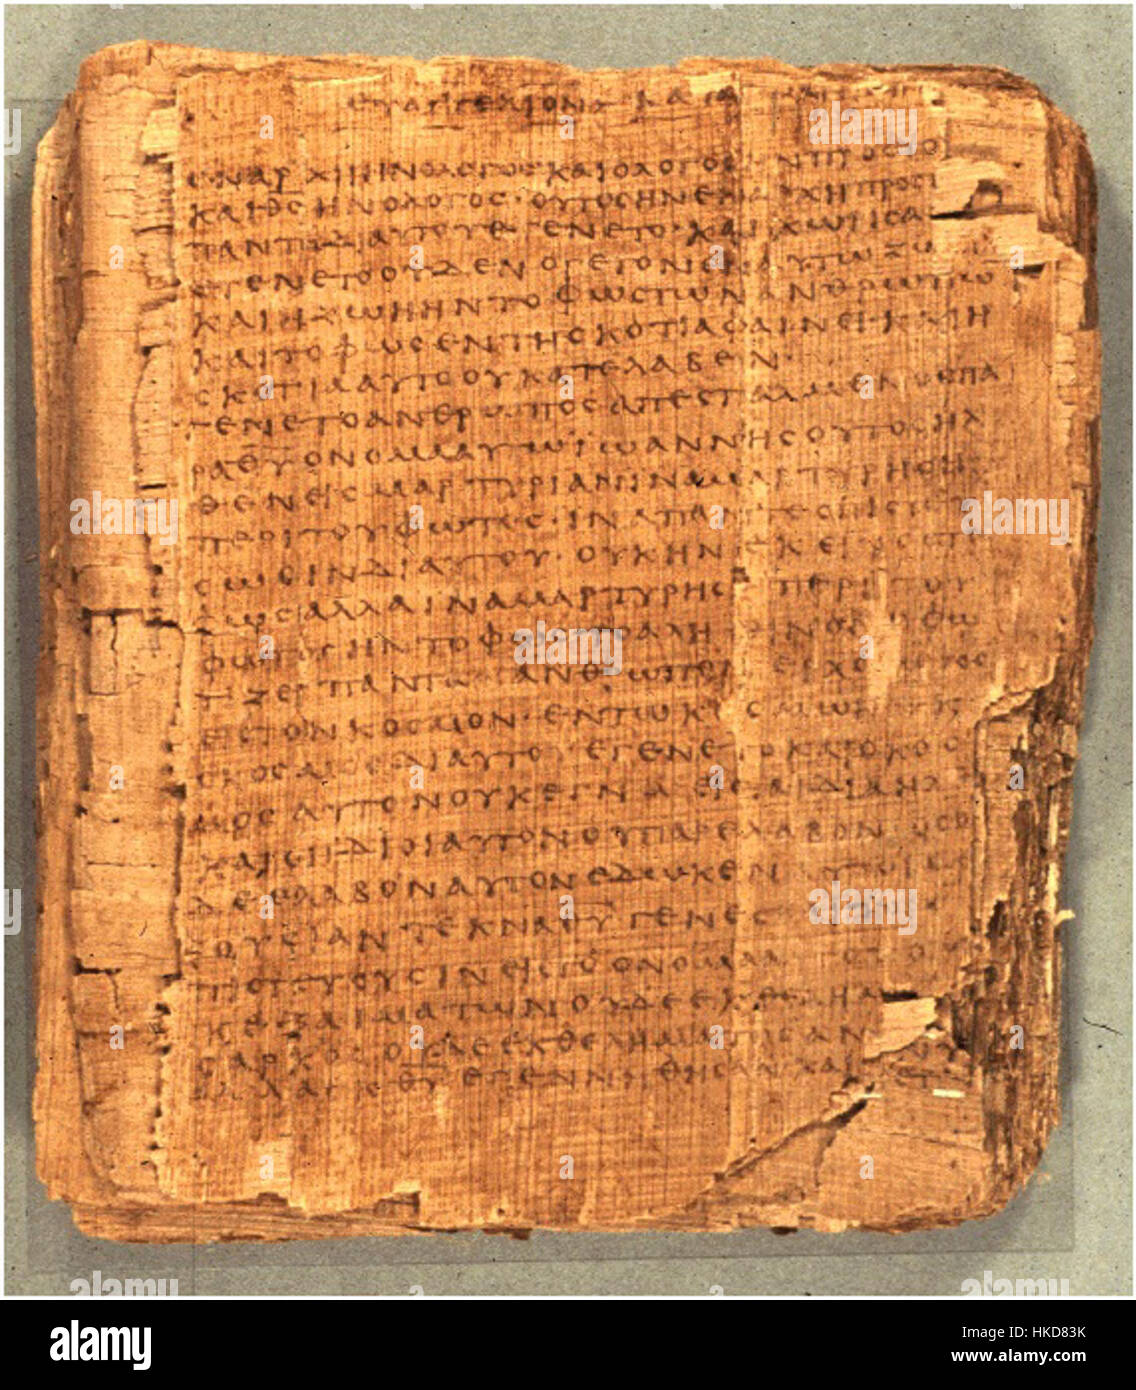 ΕΥΑΓΓΕΛΙΟΝ ΚΑΤΑ
ΕΝΑΡΧΗΗΝΟΛΟΓΟϹΚΑΙΟΛΟΓΟϹ
ΚΑΙΘϹΗΝΟΛΟΓΟϹ·ΟΥΤΟϹΗΝΕΝΑΡΧΗΠΡΟϹ
ΠΑΝΤΑΔΙΑΥΤΟΥΕΓΕΝΕΤΟ·ΚΑΙΧΩΡΙϹΑ
ΕΓΕΝΕΤΟΟΥΔΕΝΟΓΕΓΟΝΕΝ ΑΥΤΩΖΩ
ΚΑΙΗΖΩΗΗΝΤΟΦΩϹΤΩΝΑΝΘΡΩΠΩ
ΚΑΙΤΟΦΩϹΕΝΤΗϹΚΟΤΙΑΦΑΙΝΕΙ·ΚΑΙΗ
ϹΚΟΤΙΑΑΥΤΟΟΥΚΑΤΕΛΑΒΕΝ·
ΓΕΝΕΤΟΑΝΘΡΩΠΟϹΑΠΕϹΤΑΛΜΕΝΟϹΠΑ
ΡΑΘΥΟΝΟΜΑΑΥΤΩΪΩΑΝΝΗϹΟΥΤΟϹΗΛ
ΘΕΝΕΙϹΜΑΡΤΥΡΙΑΝΙΝΑΜΑΡΤΥΡΗϹΗ
ΠΕΡΙΤΟΥΦΩΤΟϹ·ΙΝΑΠΑΝΤΕϹΠΙϹΤΕΥ
ϹΩϹΙΝΔΙΑΥΤΟΥ·ΟΥΚΗΝΕΚΕΙΝΟϹΤΟ
ΦΩϹΑΛΛΑΙΝΑΜΑΡΤΥΡΗϹΗΠΕΡΙΤΟΥ
ΦΩΤΟϹΗΝΤΟΦΩϹΤΟΑΛΗΘΙΝΟΝΟΦΩ
ΤΙΖΕΙΠΑΝΤΑΑΝΘΡΩΠΟΝΕΡΧΟΜΕΝΟ
ΕΙϹΤΟΝΚΟϹΜΟΝ·ΕΝΤΩΚΟϹΜΩΗΝΚΑΙ
ΟΚΟϹΜΟϹΔΙΑΥΤΟΥΕΓΕΝΕΤΟΚΑΙΟΚΟϹ
ΜΟϹΑΥΤΟΝΟΥΚΕΓΝΩΕΙϹΤΑΙΔΙΑΗΛ
ΚΑΙΟΙΪΔΙΟΙΑΥΤΟΝΟΥΠΑΡΕΛΑΒΟΝ ΟϹΟ
ΔΕΕΛΑΒΟΝΑΥΤΟΝΕΔΩΚΕΝΑΥΤΟΙϹ
ΞΟΥϹΙΑΝΤΕΚΝΑΘΥΓΕΝΕϹ
ΠΙϹΤΕΥΟΥϹΙΝΕΙϹΤΟΟΝΟΜΑΑΥΤΟΥΟΥ
ΚΕΞΑΙΜΑΤΩΝΟΥΔΕΕΚΘΕΛΗΜΑ
ϹΑΡΚΟϹΟΥΔΕΕΚΘΕΛΗΜΑΤΟϹΑΝ
ΑΛΛΑΕΚΘΥΕΓΕΝΝΗΘΗϹΑΝ·ΚΑΙ
alamy
Image ID: HKD83K
www.alamy.com